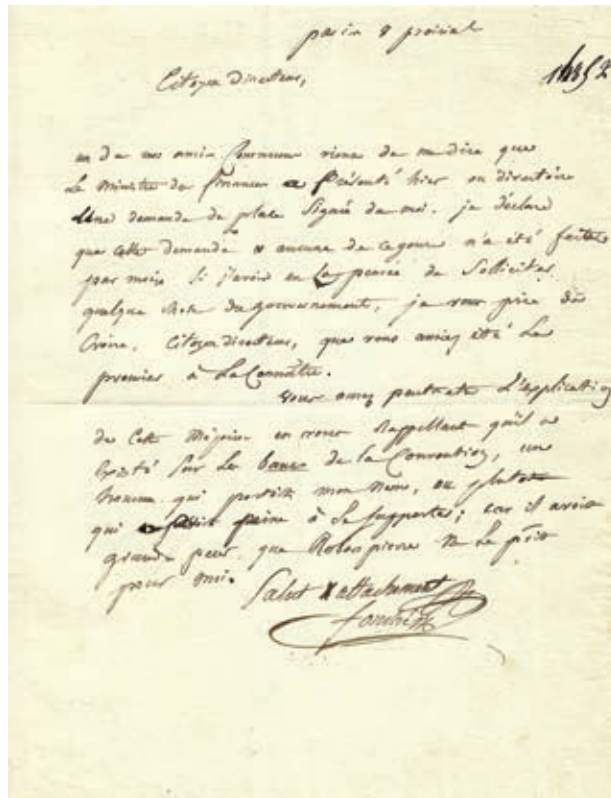 paris 8 prairial
Citoyen Directeur,
un de nos amis Communs vient de me dire que
le ministre des finances a présenté hier au directoire
Une demande de place signée de moi. je déclare
que cette demande n'a été faite
par moi. Si j'avois eu la pensée de solliciter
quelque chose du gouvernement, je vous prie de
Croire, Citoyen directeur, que vous auriez été le
premier à la Connoître.
vous aurez peut-être l'explication
de cette Méprise en vous Rappellant qu'il a
Existé sur les bancs de la Convention, un
homme qui portoit mon Nom, ou plutôt
qui avoit peine à le supporter; car il avoit
grande peur que Robespierre ne le prît
pour moi.
Salut & attachement
fouché